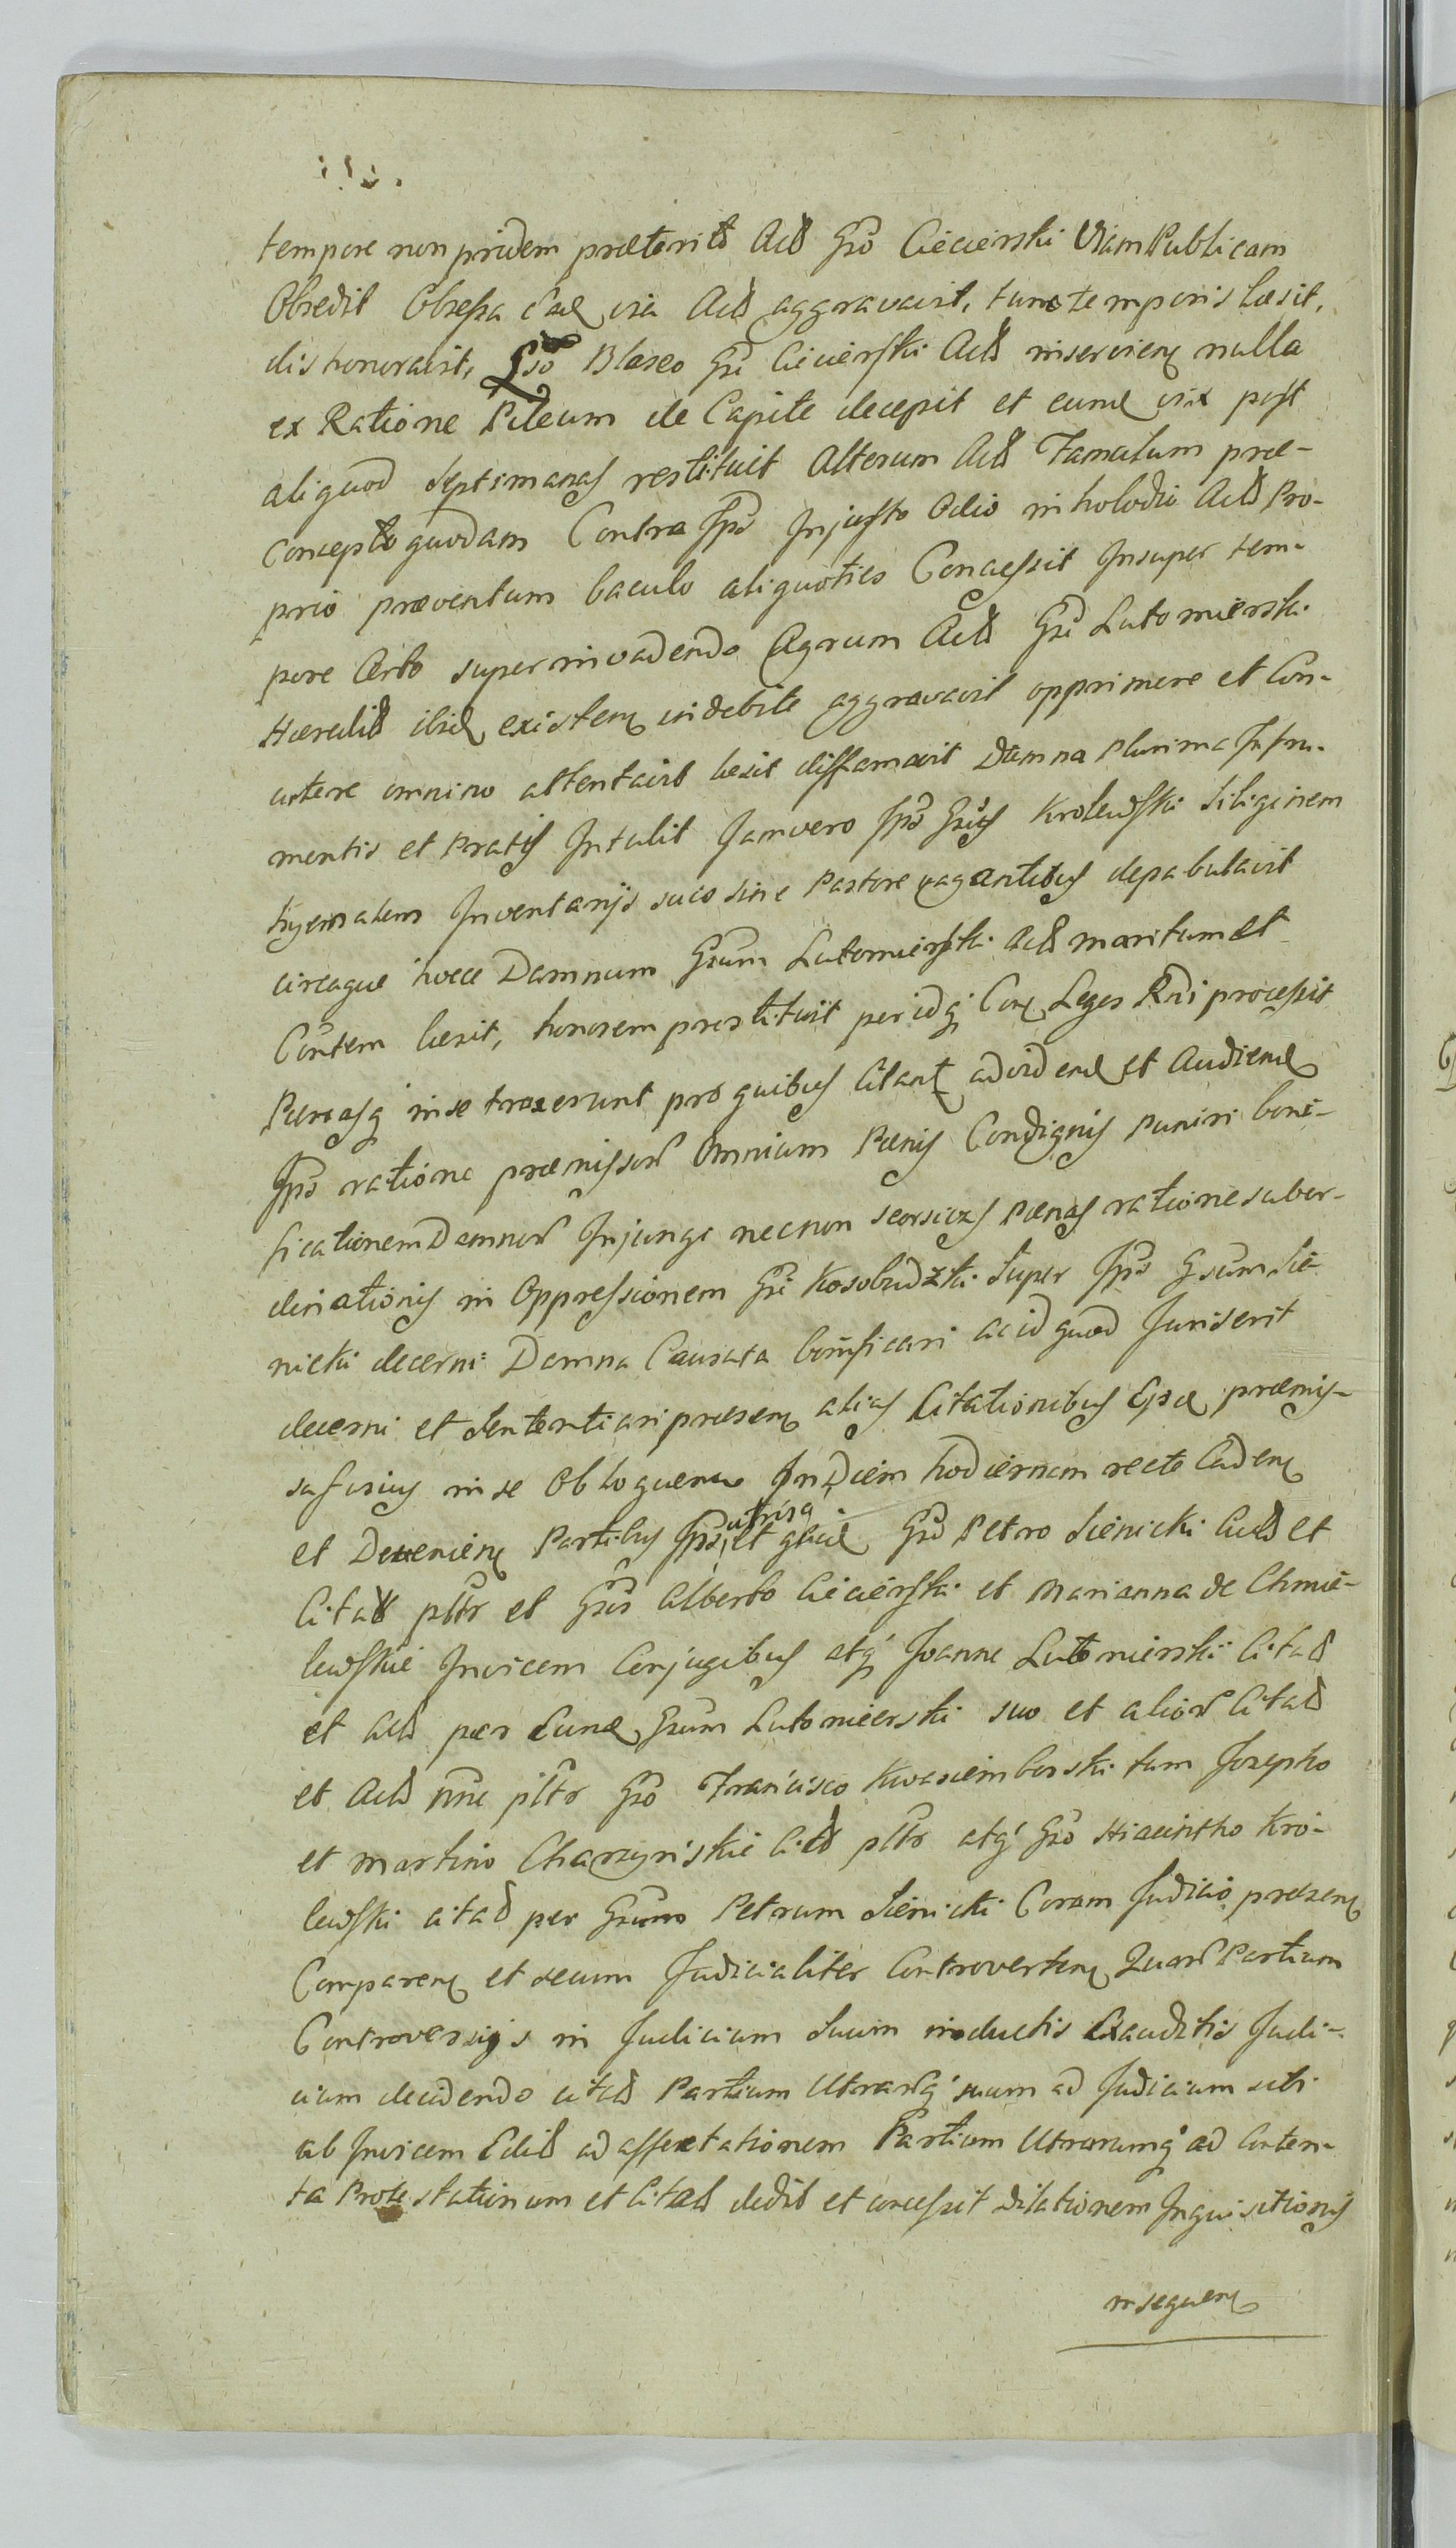 tempore non pridem præterito Actō Gsō Ciecierski Viam Publicam
Obsedit Obsessa eāe via Actō aggravavit, tunc temporis læsit,
dishonoravit, Lsō Blaseo Gsi Ciecierski Actō inservien nulla
ex Ratione Pileum de Capite decepit et eund vix post
aliquod Septimanas restituit Alterum Actō Famulum præ-
concepto quodam Contra Ipsō Injusto Odio in holodii Actō Pro-
prio præventum baculo aliquoties Concessit Insuper tem-
pore Certo superinvadendo Agrum Actō Gsi Lutomierski
Hæredit ibid existen indebite aggravavit opprimere et Con-
cutere omnino attentavit læsit diffamavit Damna plurima In fru-
mentis et Pratis Intulit Jamvero Ipsō Gsus Krolewski Siliginem
hyemalem Inventarijs suis sine Pastore vagantibus depabulavit
circaque hocce Damnum Gsum Lutomierski Actō maritum et
Cōntem læsit, honorem prostituit per idq Con Leges Rni processit
Pænasq in se traxerunt pro quibus Citant ad viden et Audiend
Ipsō ratione præmissor Omnium Pænis Condignis puniri boni-
ficationem Damnor Injungi necnon seorsivas Pænas ratione subor-
dinationis in Oppressionem Gsi Kosobudzki Super Ipsō Gsum Sie-
nicki decerni Damna Causata bonificari ac id quod Juris erit
decerni et Sententiari præsen alias Citationibus Eisd præmis-
sa fusius in se Obloquen In Diem hodiernam recte Caden
et Devenien Partibus Ipsis utrisq et quid Gsō Petro Sienicki Actō et
Citatō pltr et Gsis Alberto Ciecierski et Marianna de Chmie-
lewskie Invicem Conjugibus atq Joanne Lutomierski Citatō
et Actō per Eund Gsum Lutomierski suo et alior Citatō
et Actō nne pltr Gsō Francisco Kwasiemborski tum Josepho
et Martino Charzyńskie Citō pltr atq Gsō Hiacintho Kro-
lewski citatō per Gsum Petrum Sienicki Coram Judicio præsen
Comparen et secum Judicialiter Controverten Quar Partium
Controversijs in Judicium Suum inductis Exauditis Judi-
cium decidendo citatō Partium Utrarq suum ad Judicium sibi
ab Invicem Editō ad affectationem Partium Utrarumq ad Conten-
ta Protestationum et Citatō dedit et concessit Dilationem Inquisitionis
insequen